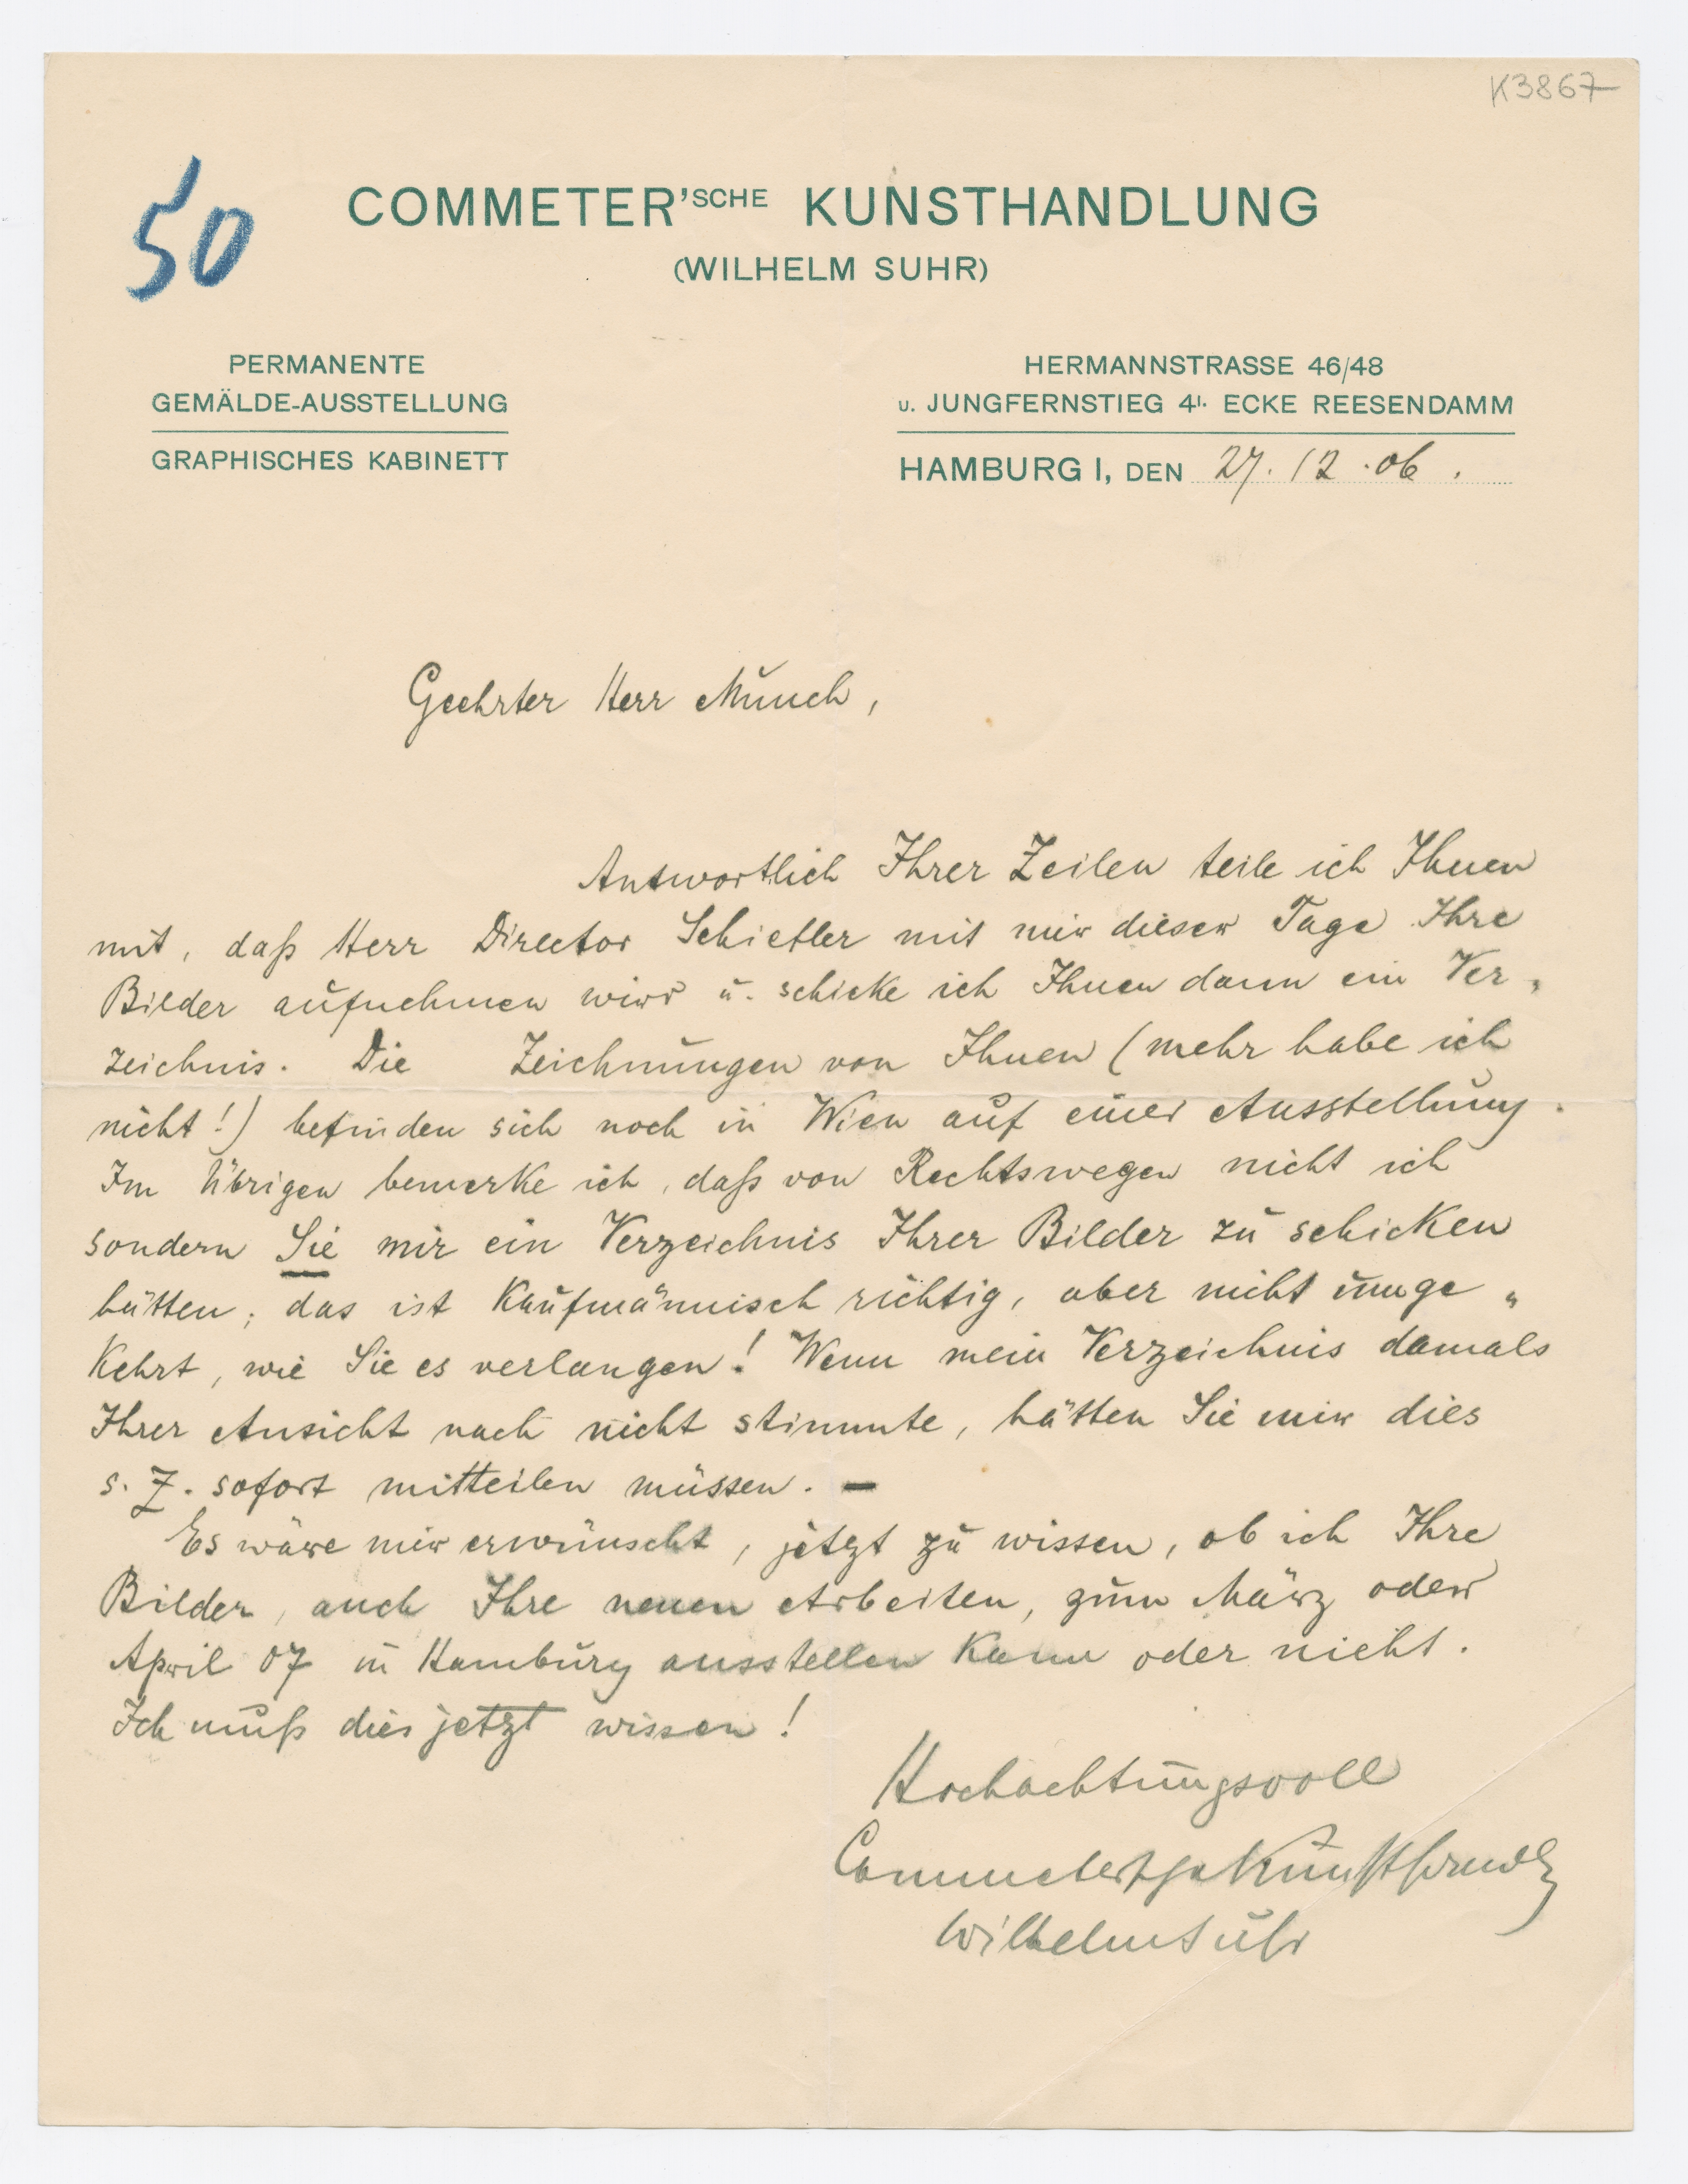 K3867
50
COMMETER'SCHE KUNSTHANDLUNG
(WILHELM SUHR)
PERMANENTE
GEMÄLDE-AUSSTELLUNG
GRAPHISCHES KABINETT
HERMANNSTRASSE 46/48
U. JUNGFERNSTIEG 4I. ECKE REESENDAMM
HAMBURG I, DEN 27.12.06.
Geehrter Herr Munch,
Antwortlich Ihrer Zeilen teile ich Ihnen
mit, daß Herr Director Schiefler mit mir dieser Tage Ihre
Bilder aufnehmen wird u. schicke ich Ihnen dann ein Ver„
zeichnis. Die Zeichnungen von Ihnen (mehr habe ich
nicht!) befinden sich noch in Wien auf einer Ausstellung.
Im Übrigen bemerke ich, daß von Rechtswegen nicht ich
sondern Sie mir ein Verzeichnis Ihrer Bilder zu schicken
hätten; das ist Kaufmännisch richtig, aber nicht umge„
Kehrt, wie Sie es verlangen! Wenn mein Verzeichnis damals
Ihrer Ansicht nach nicht stimmte, hätten Sie mir dies
s. Z. sofort mitteilen müssen. —
Es wäre mir erwünscht, jetzt zu wissen, ob ich Ihre
Bilder, auch Ihre neuen Arbeiten, zum März oder
April 07 in Hamburg ausstellen Kann oder nicht.
Ich muß dies jetzt wissen!
Hochachtungsvoll
Commetersche Kunsthandlg
Wilhelm Suhr